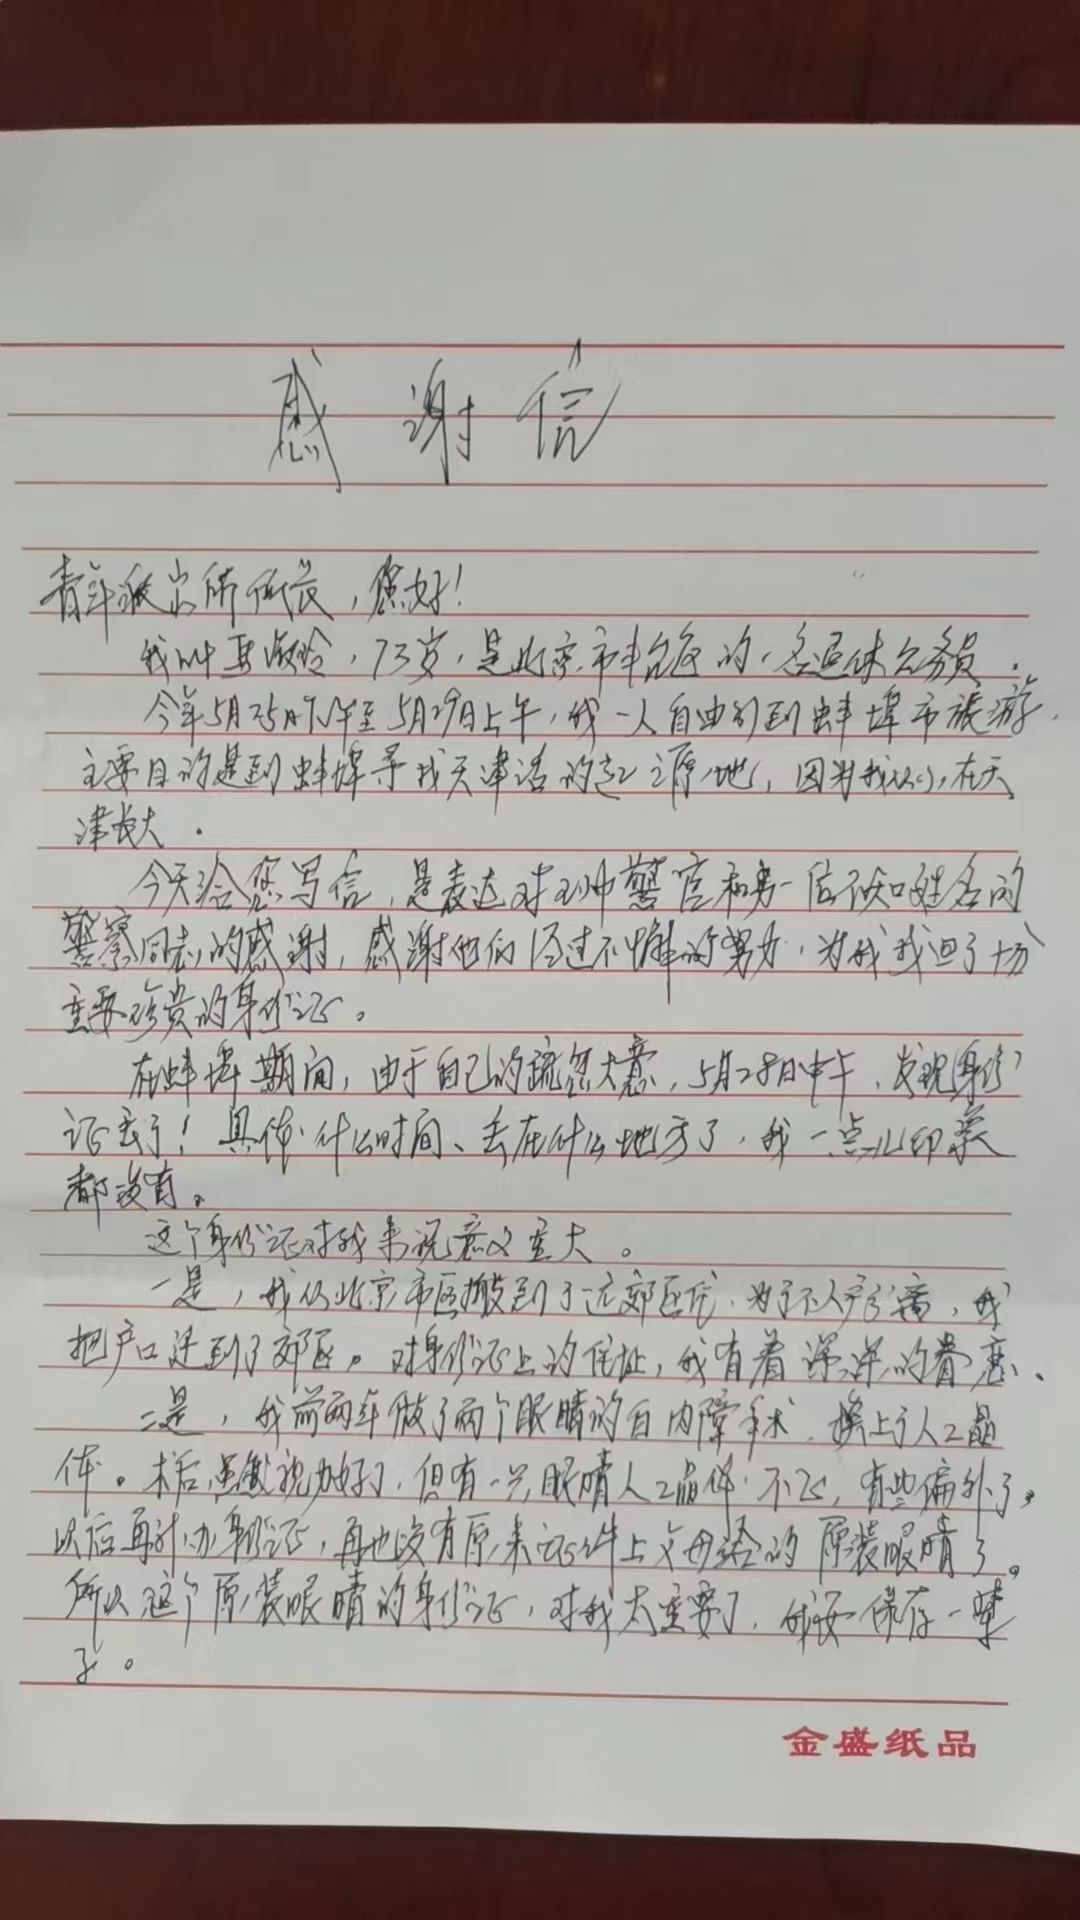 感谢信
青年派出所所长，您好！
我叫，73岁，是北京市丰台区的一名退休公务员．
今年5月25日下午至5月29日上午，我一人自由行到蚌埠市旅游．
主要目的是到蚌埠寻找天津话的起源地，因为我从小在天
津长大．
今天给您写信，是表达对警官和另一位不知姓名的
警察同志的感谢，感谢他们经过不懈的努力，为我找回了十分
重要珍贵的身份证。
在蚌埠期间，由于自己的疏忽大意，5月28日中午，发现身份
证丢了！具体什么时间、丢在什么地方了，我一点儿印象
都没有。
这个身份证对我来说意义重大。
一是，我从北京市区搬到了远郊区住．为了不人户分离，我
把户口迁到了郊区。对身份证上的住址，我有着深深的眷恋、
二是，我前两年做了两个眼睛的白内障手术．换上了人工晶
体。术后虽然视力好了，但有一只眼睛人工晶体不正，有些偏外了。
以后再补办身份证，再也没有原来证件上父母给的原装眼睛了。
所以这个原装眼睛的身份证，对我太重要了，我要保存一辈
子。
金盛纸品